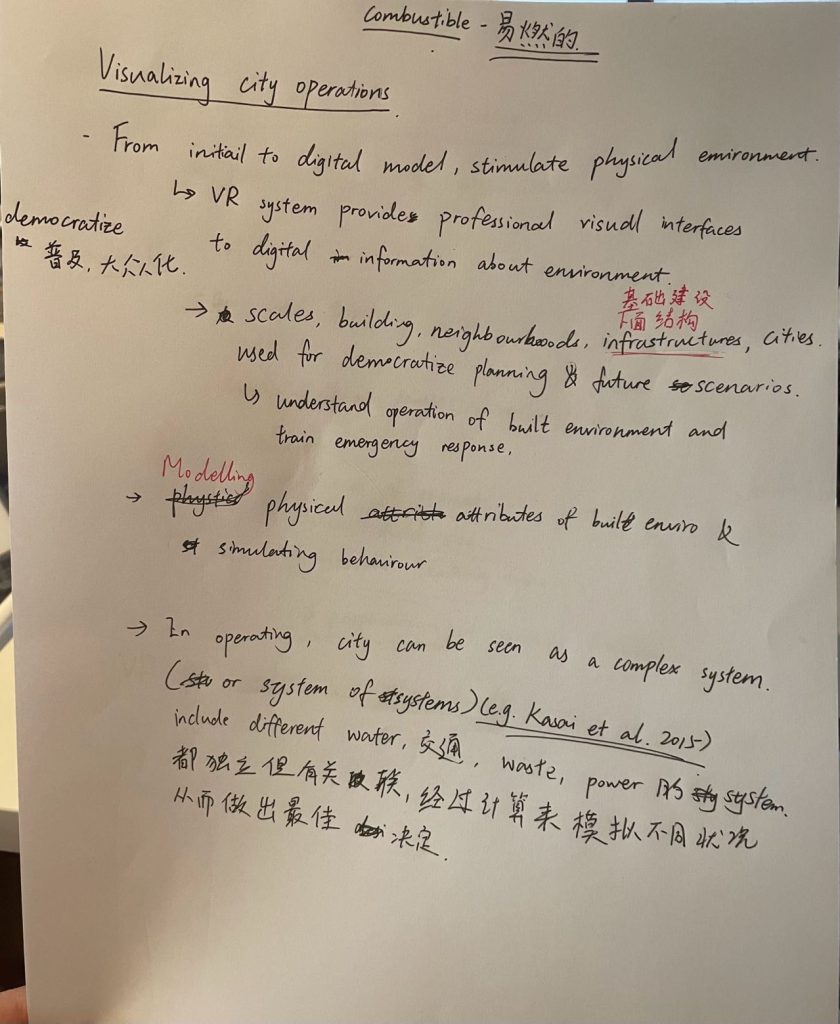 Combustible - 易燃的
Visualizing city operations
- From initiail to digital model, stimulate physical emironment.
↳ VR system provides professional visual interfaces
to digital information about environment.
democratize
普及, 大众化.
基础建设
下面结构
→ scales, building, neighbourhoods, infrastructures, cities.
used for democratize planning & future scenarios.
↳ understand operation of built environment and
train emergency response.
Modelling
→ physical attributes of built enviro &
simulating behavirour
→ In operating, city can be seen as a complex system.
(or system of systems) (e.g. Kasai et al. 2015)
include different water, 交通, waste, power 的 system.
都独立但有关联, 经过计算来模拟不同状况
从而做出最佳决定.